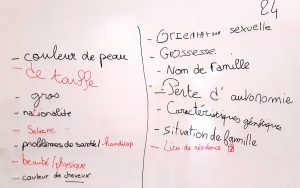 24
- couleur de peau
- de taille
- gros
- nationalité
- Salaire
- problèmes de santé / handicap
- beauté / physique
- couleur de cheveux
- Orientation sexuelle
- Grossesse
- Nom de famille
- Perte d'autonomie
- Caractéristiques génétiques
- situation de famille
- Lieu de résidence